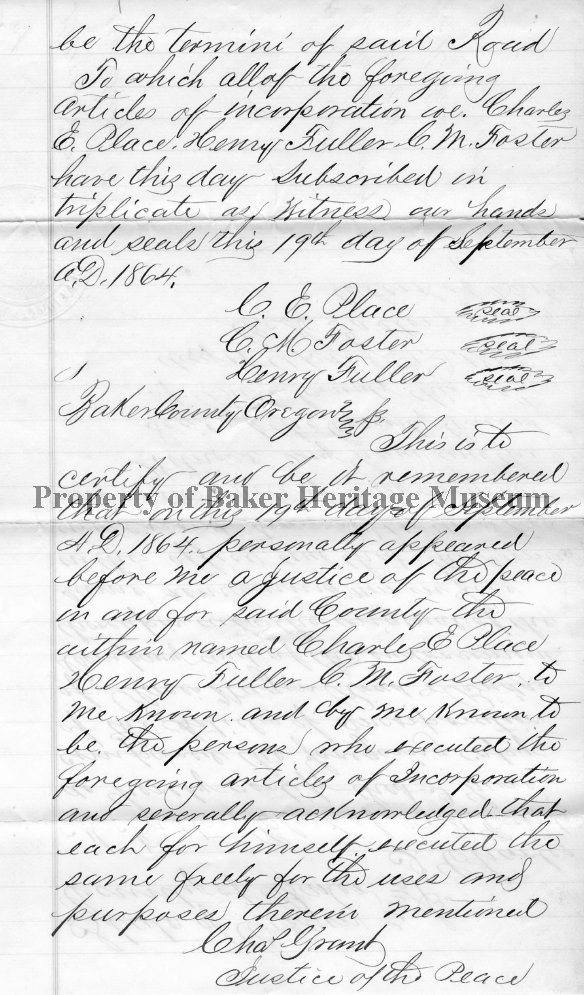 be the termini of said Road
To which all of the foregoing
articles of incorporation we. Charles
E. Place. Henry Fuller C. M. Foster
have this day Subscribed in
triplicate as witness our hands
and seals this 19th day of September
A.D. 1864.
C. E. Place seal
C. M Foster seal
Henry Fuller seal
Baker County Oregon
This is to
certify and be it remembered
Property of Baker Heritage Museum
that on this 19th day of September
A D. 1864. personally appeared
before me a justice of the peace
in and for said County the
within named Charles E Place
Henry Fuller C. M. Foster. to
me known. and by me known to
be the persons who executed the
foregoing articles of Incorporation
and severally acknowledged that
each for himself executed the
same freely for the uses and
purposes therein mentioned
Chas Grant
Justice of the Peace